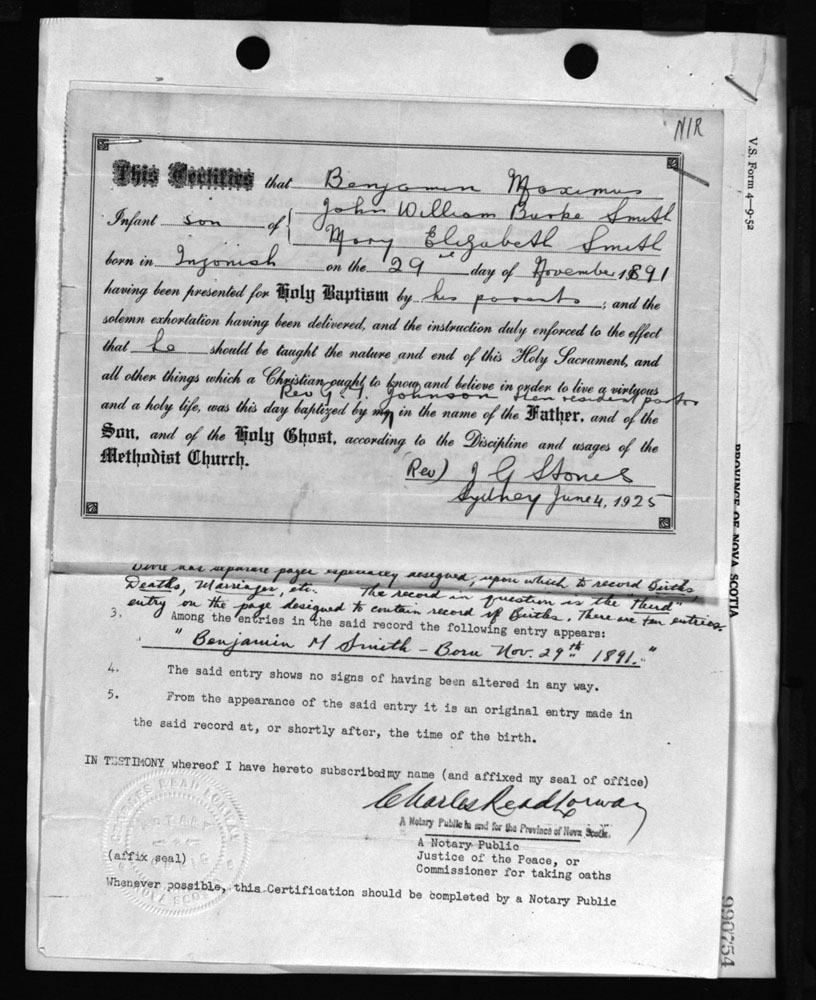 N/R
This Certifies that Benjamin Maximus
Infant son of { John William Burke Smith
Mary Elizabeth Smith
born in Ingonish on the 29 day of November 1891
having been presented for Holy Baptism by his parents ; and the
solemn exhortation having been delivered, and the instruction duly enforced to the effect
that he should be taught the nature and end of this Holy Sacrament, and
all other things which a Christian ought to know and believe in order to live a virtyous
Rev G. T. Johnson then resident pastor
and a holy life, was this day baptized by my in the name of the Father, and of the
Son, and of the Holy Ghost, according to the Discipline and usages of the
Methodist Church.
(Rev) J G Stones
Sydney June 4, 1925
separate pages especially designed, upon which to record Births
Deaths, Marriages, etc. The record in question is the "third"
entry on the page designed to contain record of Births. There are ten entries.
3. Among the entries in the said record the following entry appears:
"Benjamin M Smith - Born Nov. 29th 1891."
4. The said entry shows no signs of having been altered in any way.
5. From the appearance of the said entry it is an original entry made in
the said record at, or shortly after, the time of the birth.
IN TESTIMONY whereof I have hereto subscribed my name (and affixed my seal of office)
Charles Read Lorway
A Notary Public in and for the Province of Nova Scotia
A Notary Public
(affix seal) Justice of the Peace, or
Commissioner for taking oaths
Whenever possible, this Certification should be completed by a Notary Public
V.S. Form 4—9-52
PROVINCE OF NOVA SCOTIA
990754